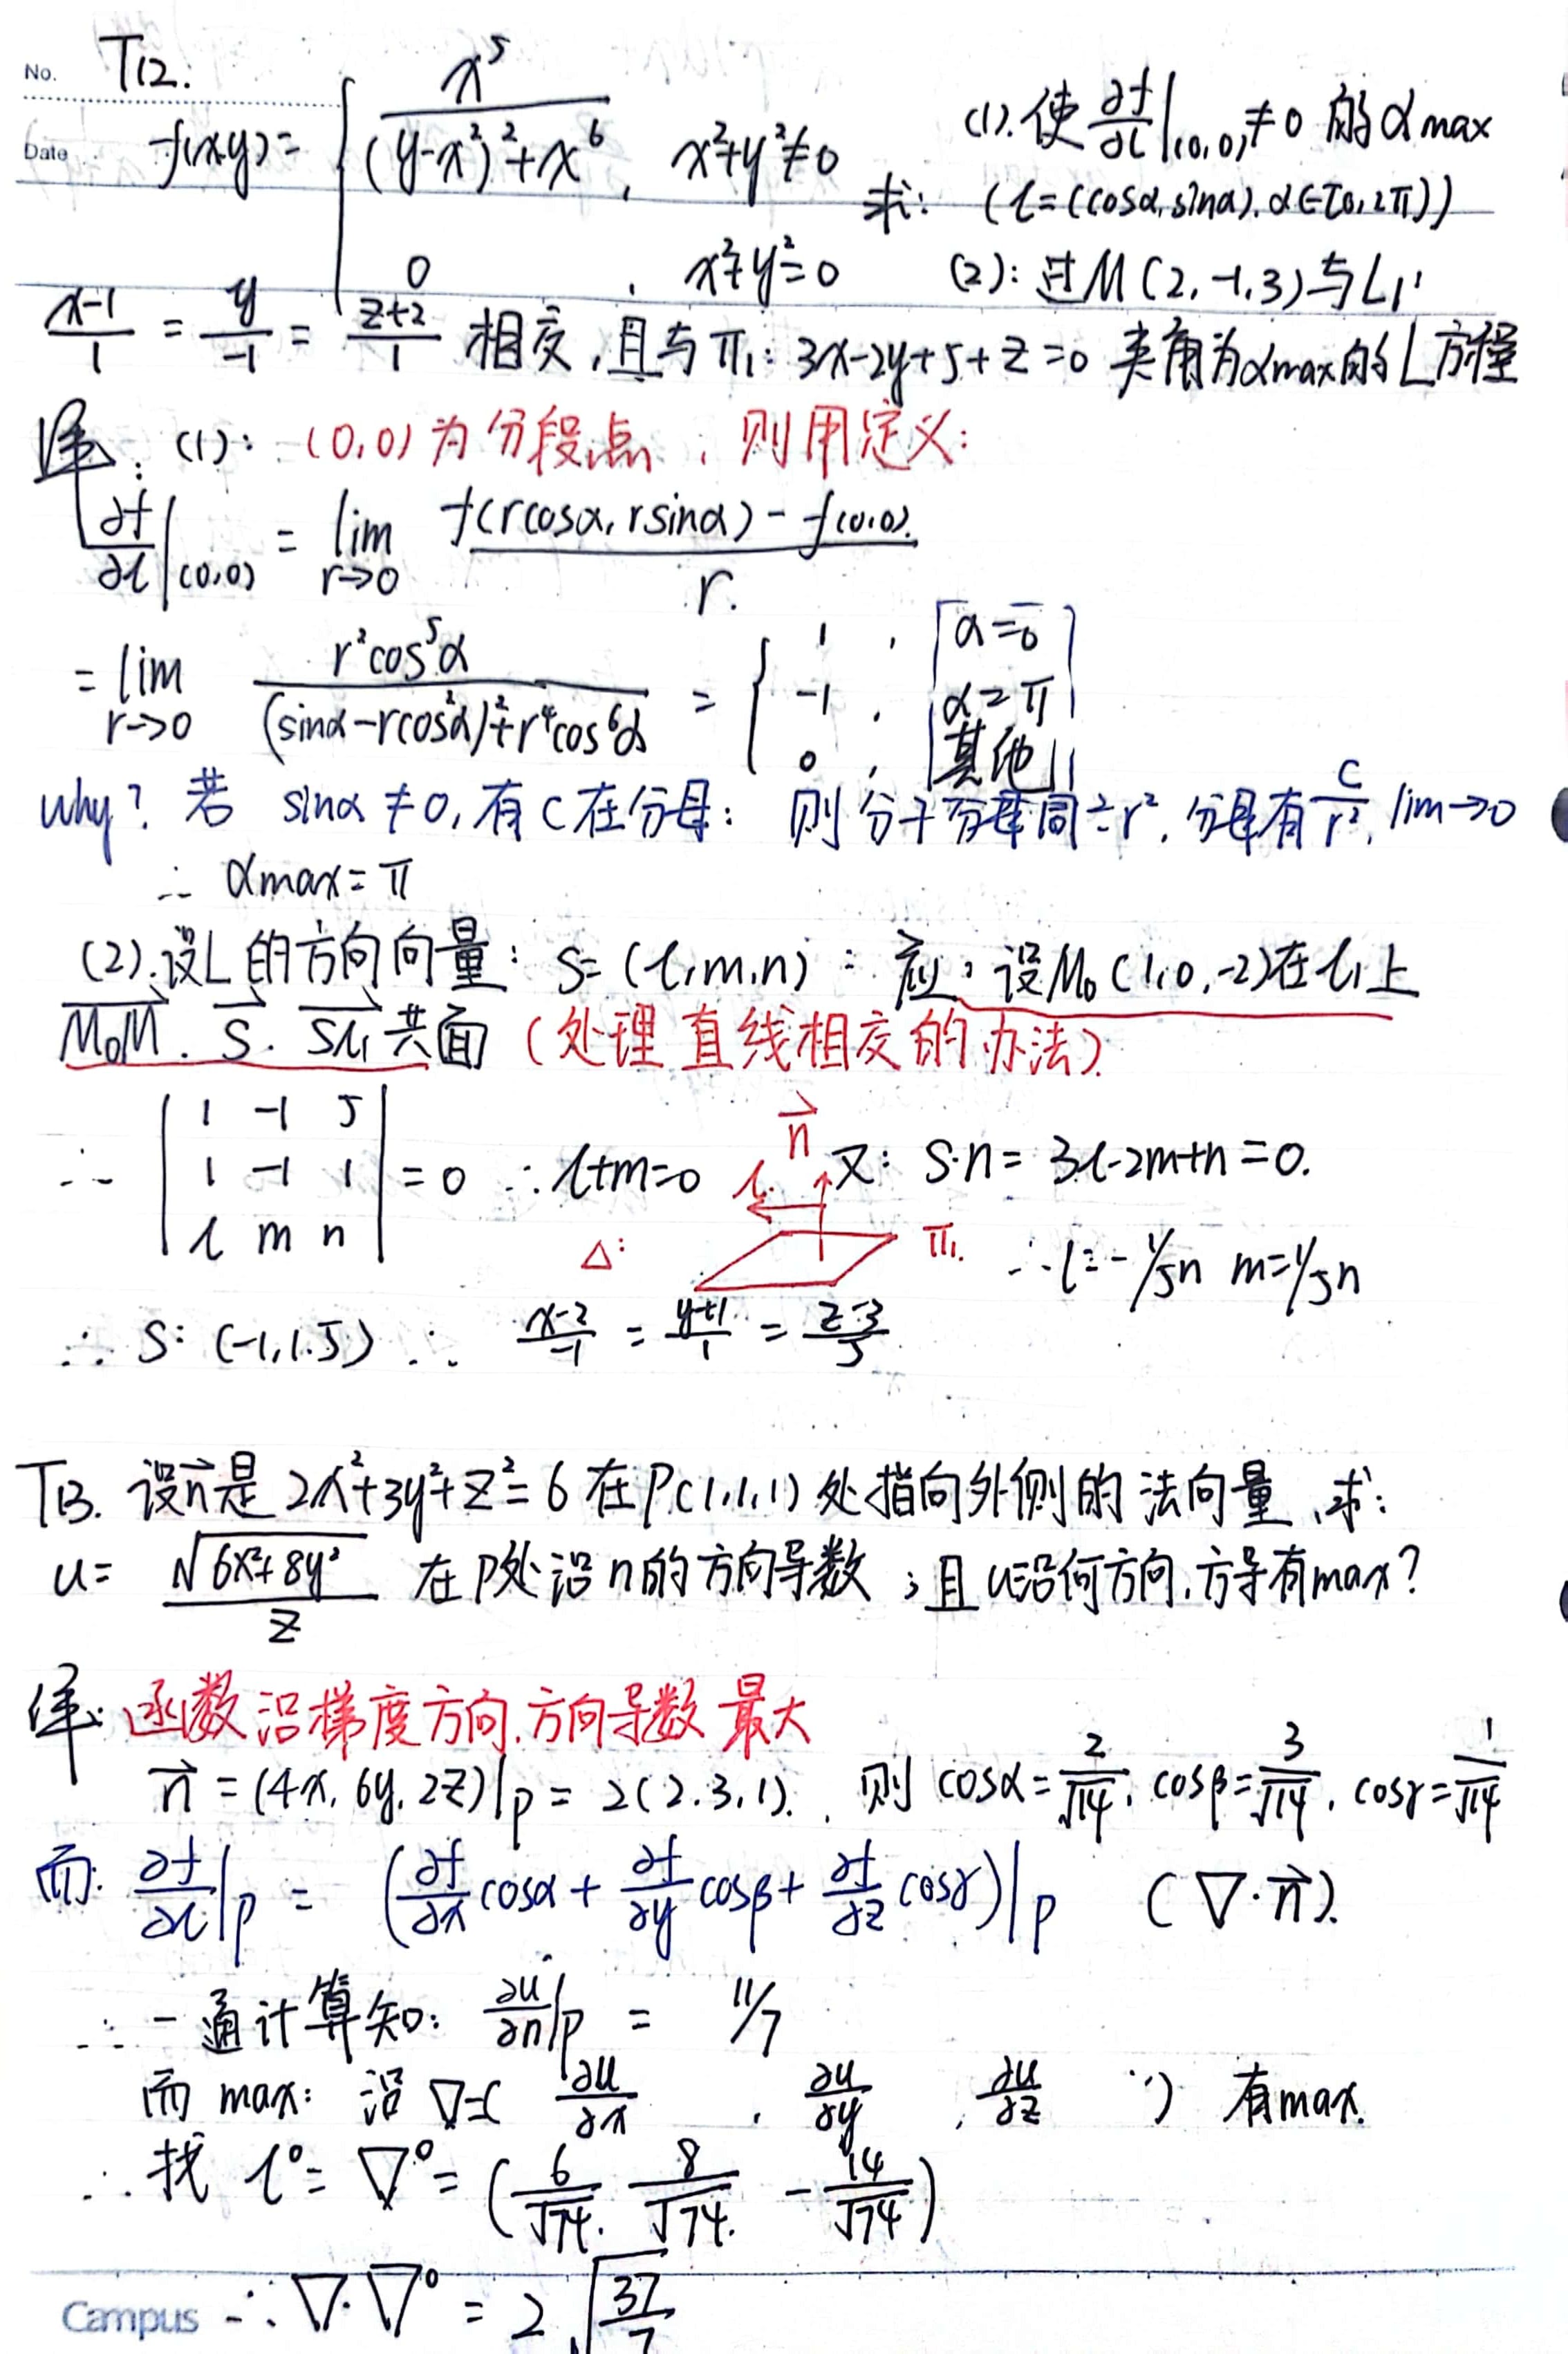 No. T12.
Date f(x,y)= { x⁵/((y-x²)²+x⁶), x²+y²≠0 求: (1).使 ∂f/∂l|(0,0)≠0 的αmax
(l=(cosα,sinα).α∈[0,2π))
0 , x²+y²=0 (2): 过M(2,-1,3)与L₁:
(x-1)/1 = y/-1 = (z+2)/1 相交,且与π₁: 3x-2y+5+z=0 夹角为αmax的L方程
解: (1): (0,0)为分段点,则用定义:
∂f/∂l|(0,0) = lim r→0 (f(rcosα,rsinα)-f(0,0))/r.
= lim r→0 r²cos⁵α/((sinα-rcos²α)²+r⁴cos⁶α) = { 1, α=0
-1, α=π
0, 其他
why? 若 sinα≠0,有C在分母: 则分子分母同÷r².分母有C/r², lim→0
∴ αmax=π
(2).设L的方向向量: S=(l,m,n): 设M₀(1,0,-2)在l₁上
M₀M. S. Sl₁共面 (处理直线相交的办法)
∴ |1 -1 5|
|1 -1 1| =0 ∴l+m=0 n 又: S·n= 3l-2m+n=0.
|l m n| l. △: π₁. ∴l=-1/5n m=1/5n
∴ S: (-1,1.5) ∴ (x-2)/-1 = (y+1)/1 = (z-3)/5
T13. 设n是 2x²+3y²+z²=6 在P(1,1,1)处指向外侧的法向量,求:
u= √(6x²+8y²)/z 在P处沿n的方向导数;且u沿何方向,方导有max?
解: 函数沿梯度方向.方向导数最大
n=(4x,6y,2z)|p=2(2.3,1). 则cosα=2/√14, cosβ=3/√14, cosγ=1/√14
而: ∂f/∂l|p = (∂f/∂x cosα+∂f/∂y cosβ+∂f/∂z cosγ)|p (∇·n).
∴ 一通计算知: ∂u/∂n|p = 11/7
而 max: 沿∇=( ∂u/∂x , ∂u/∂y , ∂u/∂z ) 有max.
∴ 找 l⁰=∇⁰=(6/√74. 8/√74. -14/√74)
Campus ∴ ∇·∇⁰ = 2√(37/7)